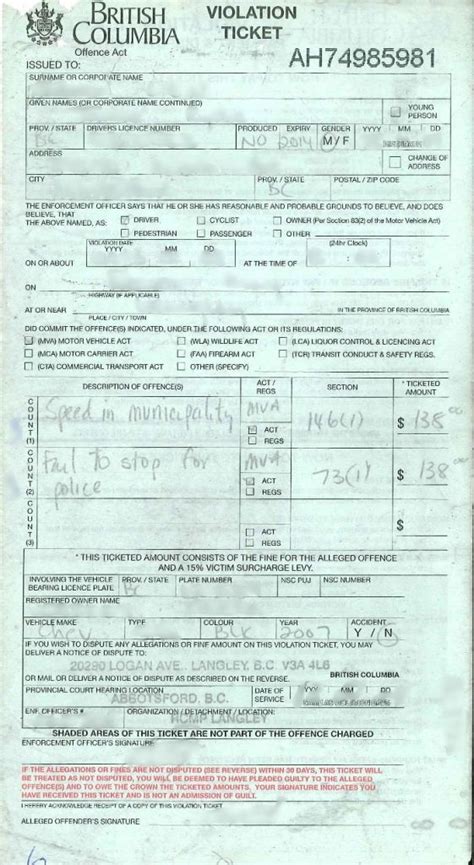 BRITISH COLUMBIA
Offence Act
VIOLATION TICKET
AH74985981
ISSUED TO:
SURNAME OR CORPORATE NAME
GIVEN NAMES (OR CORPORATE NAME CONTINUED)
YOUNG PERSON
PROV. / STATE DRIVERS LICENCE NUMBER PRODUCED EXPIRY GENDER YYYY MM DD
BC NO 2014 M / F
ADDRESS
CHANGE OF ADDRESS
CITY PROV. / STATE POSTAL / ZIP CODE
BC
THE ENFORCEMENT OFFICER SAYS THAT HE OR SHE HAS REASONABLE AND PROBABLE GROUNDS TO BELIEVE, AND DOES
BELIEVE, THAT
THE ABOVE NAMED, AS: DRIVER CYCLIST OWNER (Per Section 83(2) of the Motor Vehicle Act)
PEDESTRIAN PASSENGER OTHER
VIOLATION DATE
YYYY MM DD (24hr Clock)
ON OR ABOUT AT THE TIME OF :
ON
HIGHWAY (IF APPLICABLE)
AT OR NEAR IN THE PROVINCE OF BRITISH COLUMBIA
PLACE / CITY / TOWN
DID COMMIT THE OFFENCE(S) INDICATED, UNDER THE FOLLOWING ACT OR ITS REGULATIONS:
(MVA) MOTOR VEHICLE ACT (WLA) WILDLIFE ACT (LCA) LIQUOR CONTROL & LICENCING ACT
(MCA) MOTOR CARRIER ACT (FAA) FIREARM ACT (TCR) TRANSIT CONDUCT & SAFETY REGS.
(CTA) COMMERCIAL TRANSPORT ACT OTHER (SPECIFY)
DESCRIPTION OF OFFENCE(S) ACT / REGS SECTION * TICKETED AMOUNT
COUNT (1) Speed in municipality MVA ACT REGS 146(1) $ 138 00
COUNT (2) Fail to stop for police MVA ACT REGS 73(1) $ 138 00
COUNT (3) ACT REGS $
* THIS TICKETED AMOUNT CONSISTS OF THE FINE FOR THE ALLEGED OFFENCE
AND A 15% VICTIM SURCHARGE LEVY.
INVOLVING THE VEHICLE BEARING LICENCE PLATE PROV. / STATE PLATE NUMBER NSC PUJ NSC NUMBER
BC
REGISTERED OWNER NAME
VEHICLE MAKE TYPE COLOUR YEAR ACCIDENT
Chev Blk 2007 Y / N
IF YOU WISH TO DISPUTE ANY ALLEGATIONS OR FINE AMOUNT ON THIS VIOLATION TICKET, YOU MAY
DELIVER A NOTICE OF DISPUTE TO:
20290 LOGAN AVE., LANGLEY, B.C. V3A 4L6
BRITISH COLUMBIA
OR MAIL OR DELIVER A NOTICE OF DISPUTE AS DESCRIBED ON THE REVERSE.
PROVINCIAL COURT HEARING LOCATION DATE OF SERVICE
ABBOTSFORD, B.C.
ENF. OFFICER'S # ORGANIZATION / DETACHMENT / LOCATION:
RCMP LANGLEY
SHADED AREAS OF THIS TICKET ARE NOT PART OF THE OFFENCE CHARGED
ENFORCEMENT OFFICER'S SIGNATURE
IF THE ALLEGATIONS OR FINES ARE NOT DISPUTED (SEE REVERSE) WITHIN 30 DAYS, THIS TICKET WILL
BE TREATED AS NOT DISPUTED, YOU WILL BE DEEMED TO HAVE PLEADED GUILTY TO THE ALLEGED
OFFENCE(S) AND TO OWE THE CROWN THE TICKETED AMOUNTS. YOUR SIGNATURE INDICATES YOU
HAVE RECEIVED THIS TICKET AND IS NOT AN ADMISSION OF GUILT.
I HEREBY ACKNOWLEDGE RECEIPT OF A COPY OF THIS VIOLATION TICKET
ALLEGED OFFENDER'S SIGNATURE